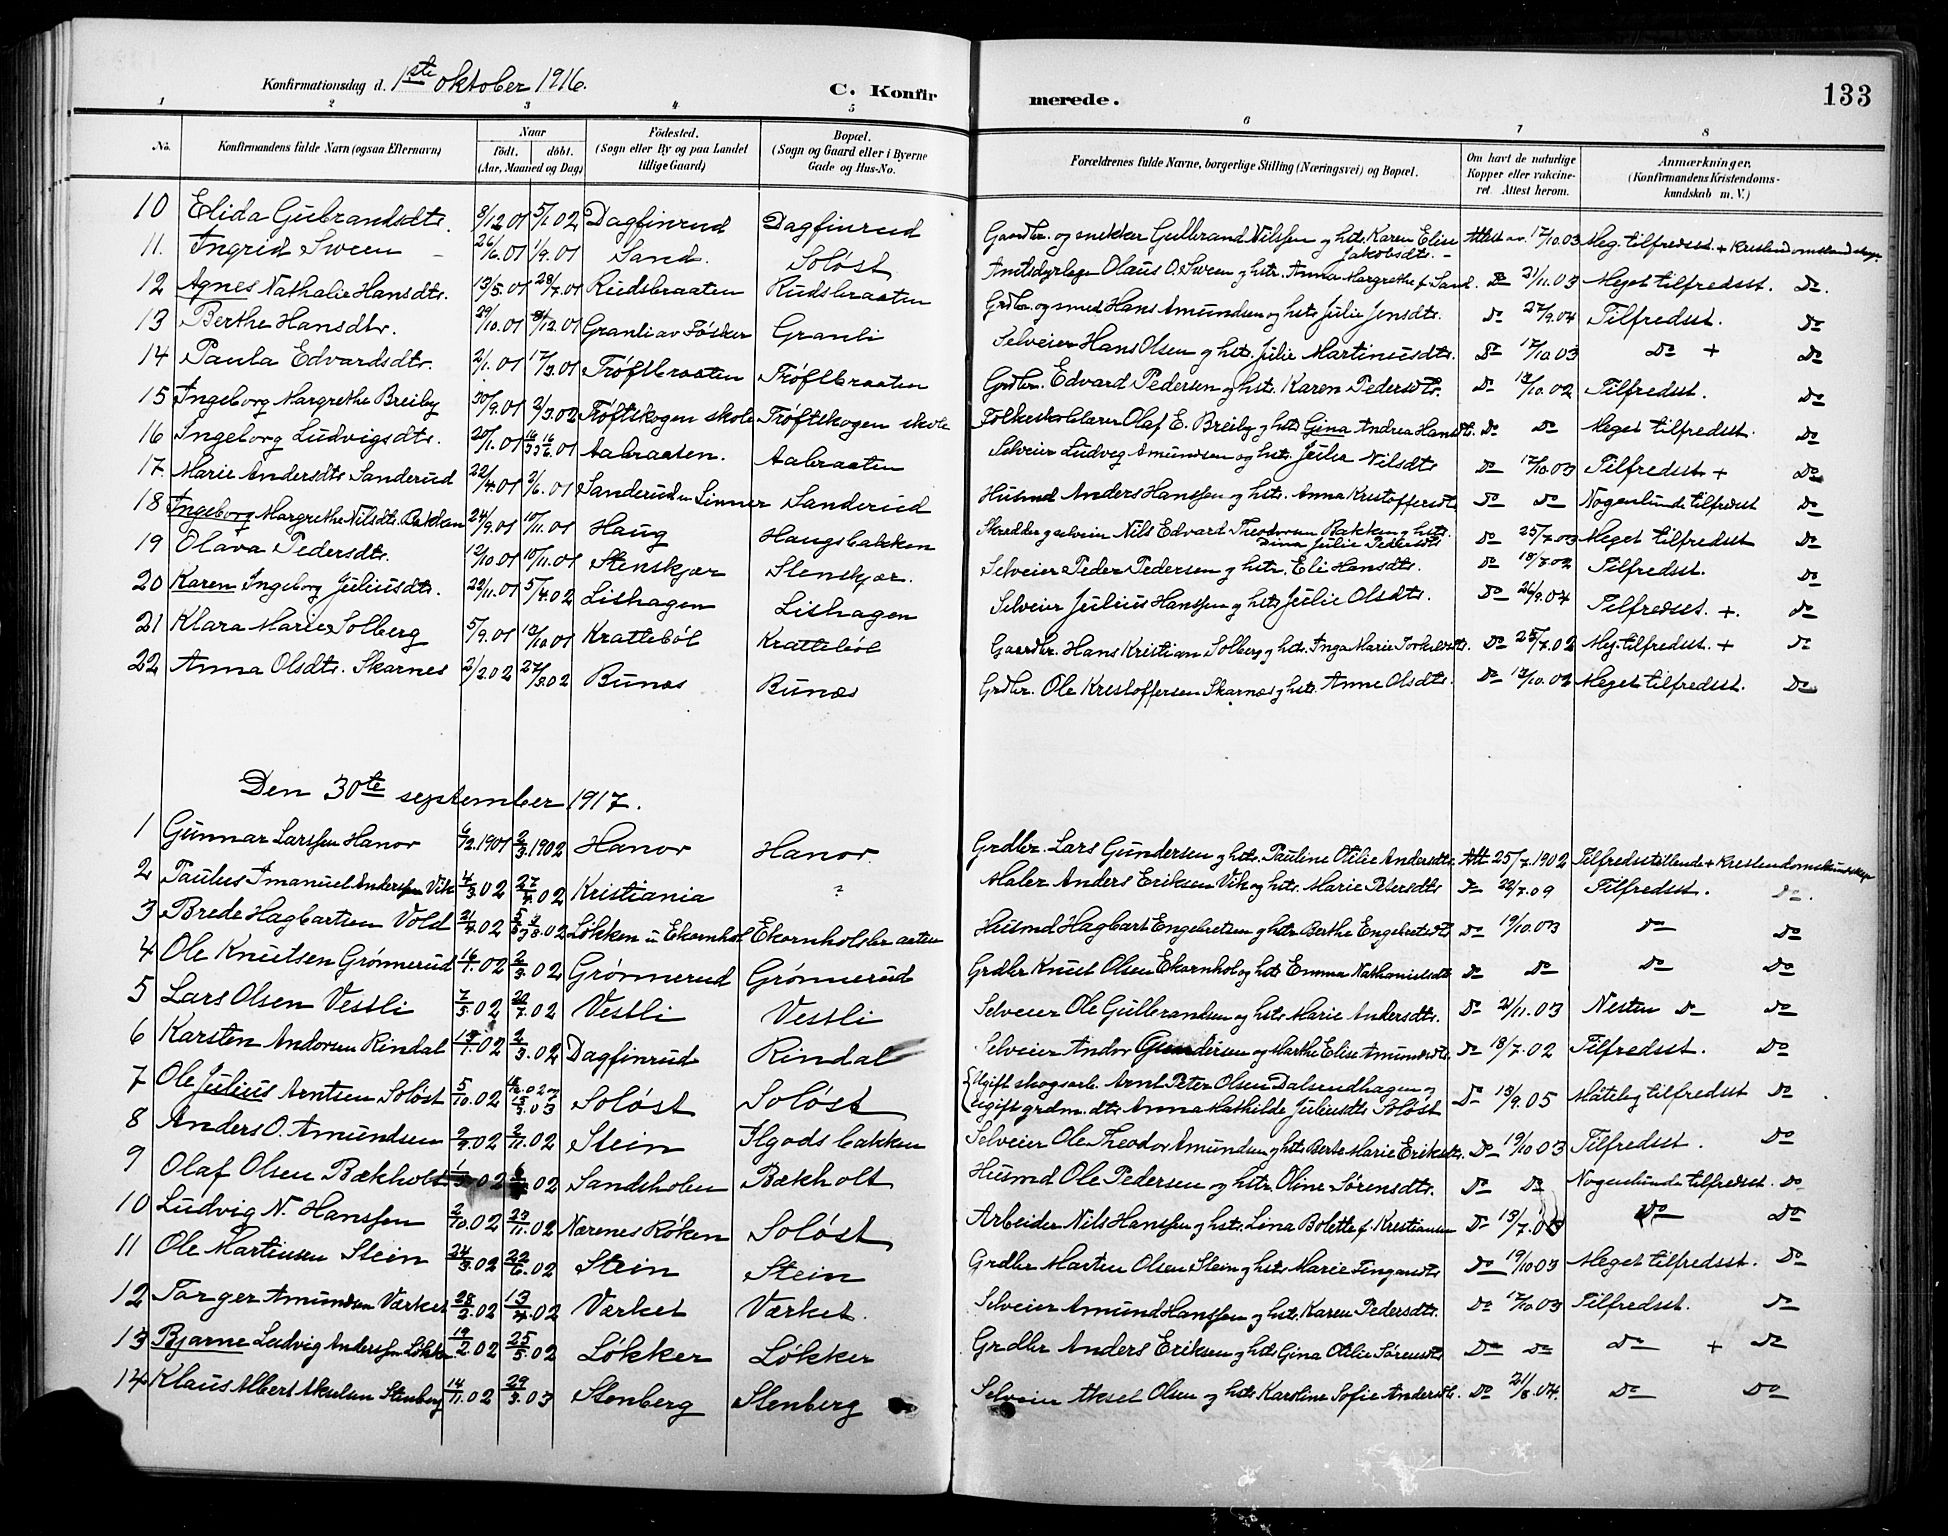 Konfirmationsdag d. 1ste oktober 1916.
C. Konfir
merede.
133
1 2 3 4 5 6 7 8
No. Konfirmandens fulde Navn (ogsaa Efternavn) Naar født. døbt. (Aar, Maaned og Dag) Fødested. (Sogn eller By og paa Landet tillige Gaard) Bopæl. (Sogn og Gaard eller i Byerne Gade og Hus-No. Forældrenes fulde Navne, borgerlige Stilling (Næringsvei) og Bopæl. Om havt de naturlige Kopper eller vaccineret. Attest herom. Anmærkninger. (Konfirmandens Kristendomskundskab m. V.)
10 Elida Gubrandsdtr. 8/12.01 5/1.02 Dagfinrud Dagfinrud Gaardbr. og snekker Gulbrand Nilssen og hstr. Karen Elise Jakobsdtr. Attest av. 17/10.03 Meg. tilfredsst. +
11. Ingrid Sween 26/6.01 1/9.01 Sand. Soløst Amtsdyrlæge Olaus O. Sween og hstr. Anna Margrethe f. Sand. Do 21/11.03 Meget tilfredsst. Do.
12 Agnes Nathalie Hansdtr. 13/5.01 28/7.01 Rudsbraaten Rudsbraaten Grdbr. og smed Hans Amundsen og hstr. Julie Jensdtr. Do 27/9.04 Tilfredsst. Do
13 Berthe Hansdtr. 29/10.01 8/12.01 Granli av Fösker Granli Selveier Hans Olsen og hstr. Julie Martinusdtr. Do 17/10.03 Do + Do
14 Paula Edvardsdtr. 2/1.01 17/3.01 Tröftbraaten Tröftbraaten Grdbr. Edvard Pedersen og hstr. Karen Pedersdtr. Do 12/10.02 Tilfredsst. Do
15 Ingeborg Margrethe Breiby 30/9.01 2/3.02 Tröftskogen skole Tröftskogen skole Folkeskolelærer Olaf E. Breiby og hstr. Gina Andrea Hansdtr. Do Do Meget tilfredsst. Do
16 Ingeborg Ludvigsdtr. 20/1.01 Aabraaten. Aabraaten Selveier Ludvig Amundsen og hstr. Julia Nilsdtr. Do 17/10.03 Tilfredsst + Do
17. Marie Andersdtr. Sanderud 22/4.01 2/6.01 Sanderud u Linner Sanderud Husmd Anders Hanssen og hstr. Anna Kristoffersdtr Do Do Nogenlunde tilfredsst Do
18 Ingeborg Margrethe Nilsdtr. Bakken 24/9.01 10/11.01 Haug Haugsbakken Skrædder og selveier Nils Edvard Theodorsen Bakken og hstr. Dina Julie Pedersdtr Do 25/7.03 Meget tilfredsst Do
19 Olava Pedersdtr. 12/10.01 10/11.01 Stenskjær Stenskjær. Selveier Peder Pedersen og hstr. Eli Hansdtr. Do 18/7.02 Tilfredsst. Do
20 Karen Ingeborg Juliusdtr. 22/11.01 5/4.02 Lishagen Lishagen Selveier Julius Hanssen og hstr. Julie Olsdtr. Do 26/9.04 Tilfredsst. +. Do
21 Klara Marie Solberg 5/9.01 13/10.01 Krattebøl Krattebøl Gaardbr. Hans Kristian Solberg og hstr. Inga Marie Do 25/7.02 Meg. tilfredsst. + Do
22 Anna Olsdtr. Skarnes 2/2.02 27/3.02 Bunæs Bunæs Grdbr. Ole Kristoffersen Skarnæs og hstr. Anne Olsdtr. Do 12/10.02 Meget tilfredsst. Do
Den 30te september 1917.
1 Gunnar Larssen Hanor 6/12.1901 2/3.1902 Hanor Hanor. Grdbr. Lars Gundersen og hstr. Pauline Otilie Andersdtr. Att 25/7.1902 Tilfredsstillende + Kristendomskundskap
2 Paulus Imanuel Anderssen Vik 4/3.02 27/4.02 Kristiania ? Maler Anders Eriksen Vik og hstr. Marie Petersdtr Do 22/7.09 Tilfredsst. Do.
3 Brede Hagbartsen Vold Løkken u Ekornhol Ekornholsbraaten Husmd Hagbart Engebretsen og hstr Berthe Engebretsdtr Do 19/10.03 Do Do
4 Ole Knutsen Grønnerud 16/1.02 2/3.02 Grønnerud Grønnerud Grdbr Knut Olsen Ekornhol og hstr Emma Nathanielsdtr Do Do Do Do
5 Lars Olsen Vestli 7/5.02 20/7.02 Vestli Vestli Selveier Ole Gulbrandsen og hstr. Marie Andersdtr. Do 21/11.03 Nesten Do Do
6 Karsten Andorsen Rindal 2/3.02 Dagfinrud Rindal Selveier Andor Gundersen og Marthe Elise Amundsdtr. Do 18/7.02 Tilfredsst. Do
7 Ole Julius Arntsen Soløst 5/10.02 Soløst Soløst Ugift skogsarb. Arnt Peter Olsen Dalsendhagen og ugift grdm. dtr. Anna Mathilde Juliusdtr Soløst Do 13/9.05 Måtelig tilfredsst Do
8 Anders O. Amundsen 2/11.02 Stein Ilgodsbakken Selveier Ole Theodor Amundsen og hstr Berte Marie Eriksdtr. Do 19/10 03 Tilfredsst. Do
9 Olaf Olsen Bækholt Sandsholen Bækholt Husmd Ole Pedersen og hstr. Oline Sørensdtr. Do Do Nogenlunde tilfredsst. Do
10 Ludvig N. Hanssen 2/10.02 23/11.02 Nærenes Røken Soløst Arbeider Nils Hanssen og hstr. Lina Bolette f. Kristiansen Do 13/7.03 Do Do
11 Ole Martinsen Stein 24/3.02 22/6.02 Stein Stein Grdbr Martin Olsen Stein og hstr. Marie Do 19/10 03 Meget tilfredsst. Do
12 Torger Amundsen Værket 28/2.02 13/4.02 Værket Værket. Selveier Amund Hanssen og hstr. Karen Pedersdtr. Do 17/10 03 Tilfredsst. Do
13 Bjarne Ludvig Anderssen Løkker 19/2.02 25/5.02 Løkker Løkker Grdbr Anders Eriksen og hstr Gina Otilie Sørensdtr Do Do Do + Do
14 Klaus Albert Akselsen Stenberg 14/11.02 29/3.03 Stenberg Stenberg Selveier Aksel Olsen og hstr. Karoline Sofie Andersdtr. Do 21/6.04. Do Do